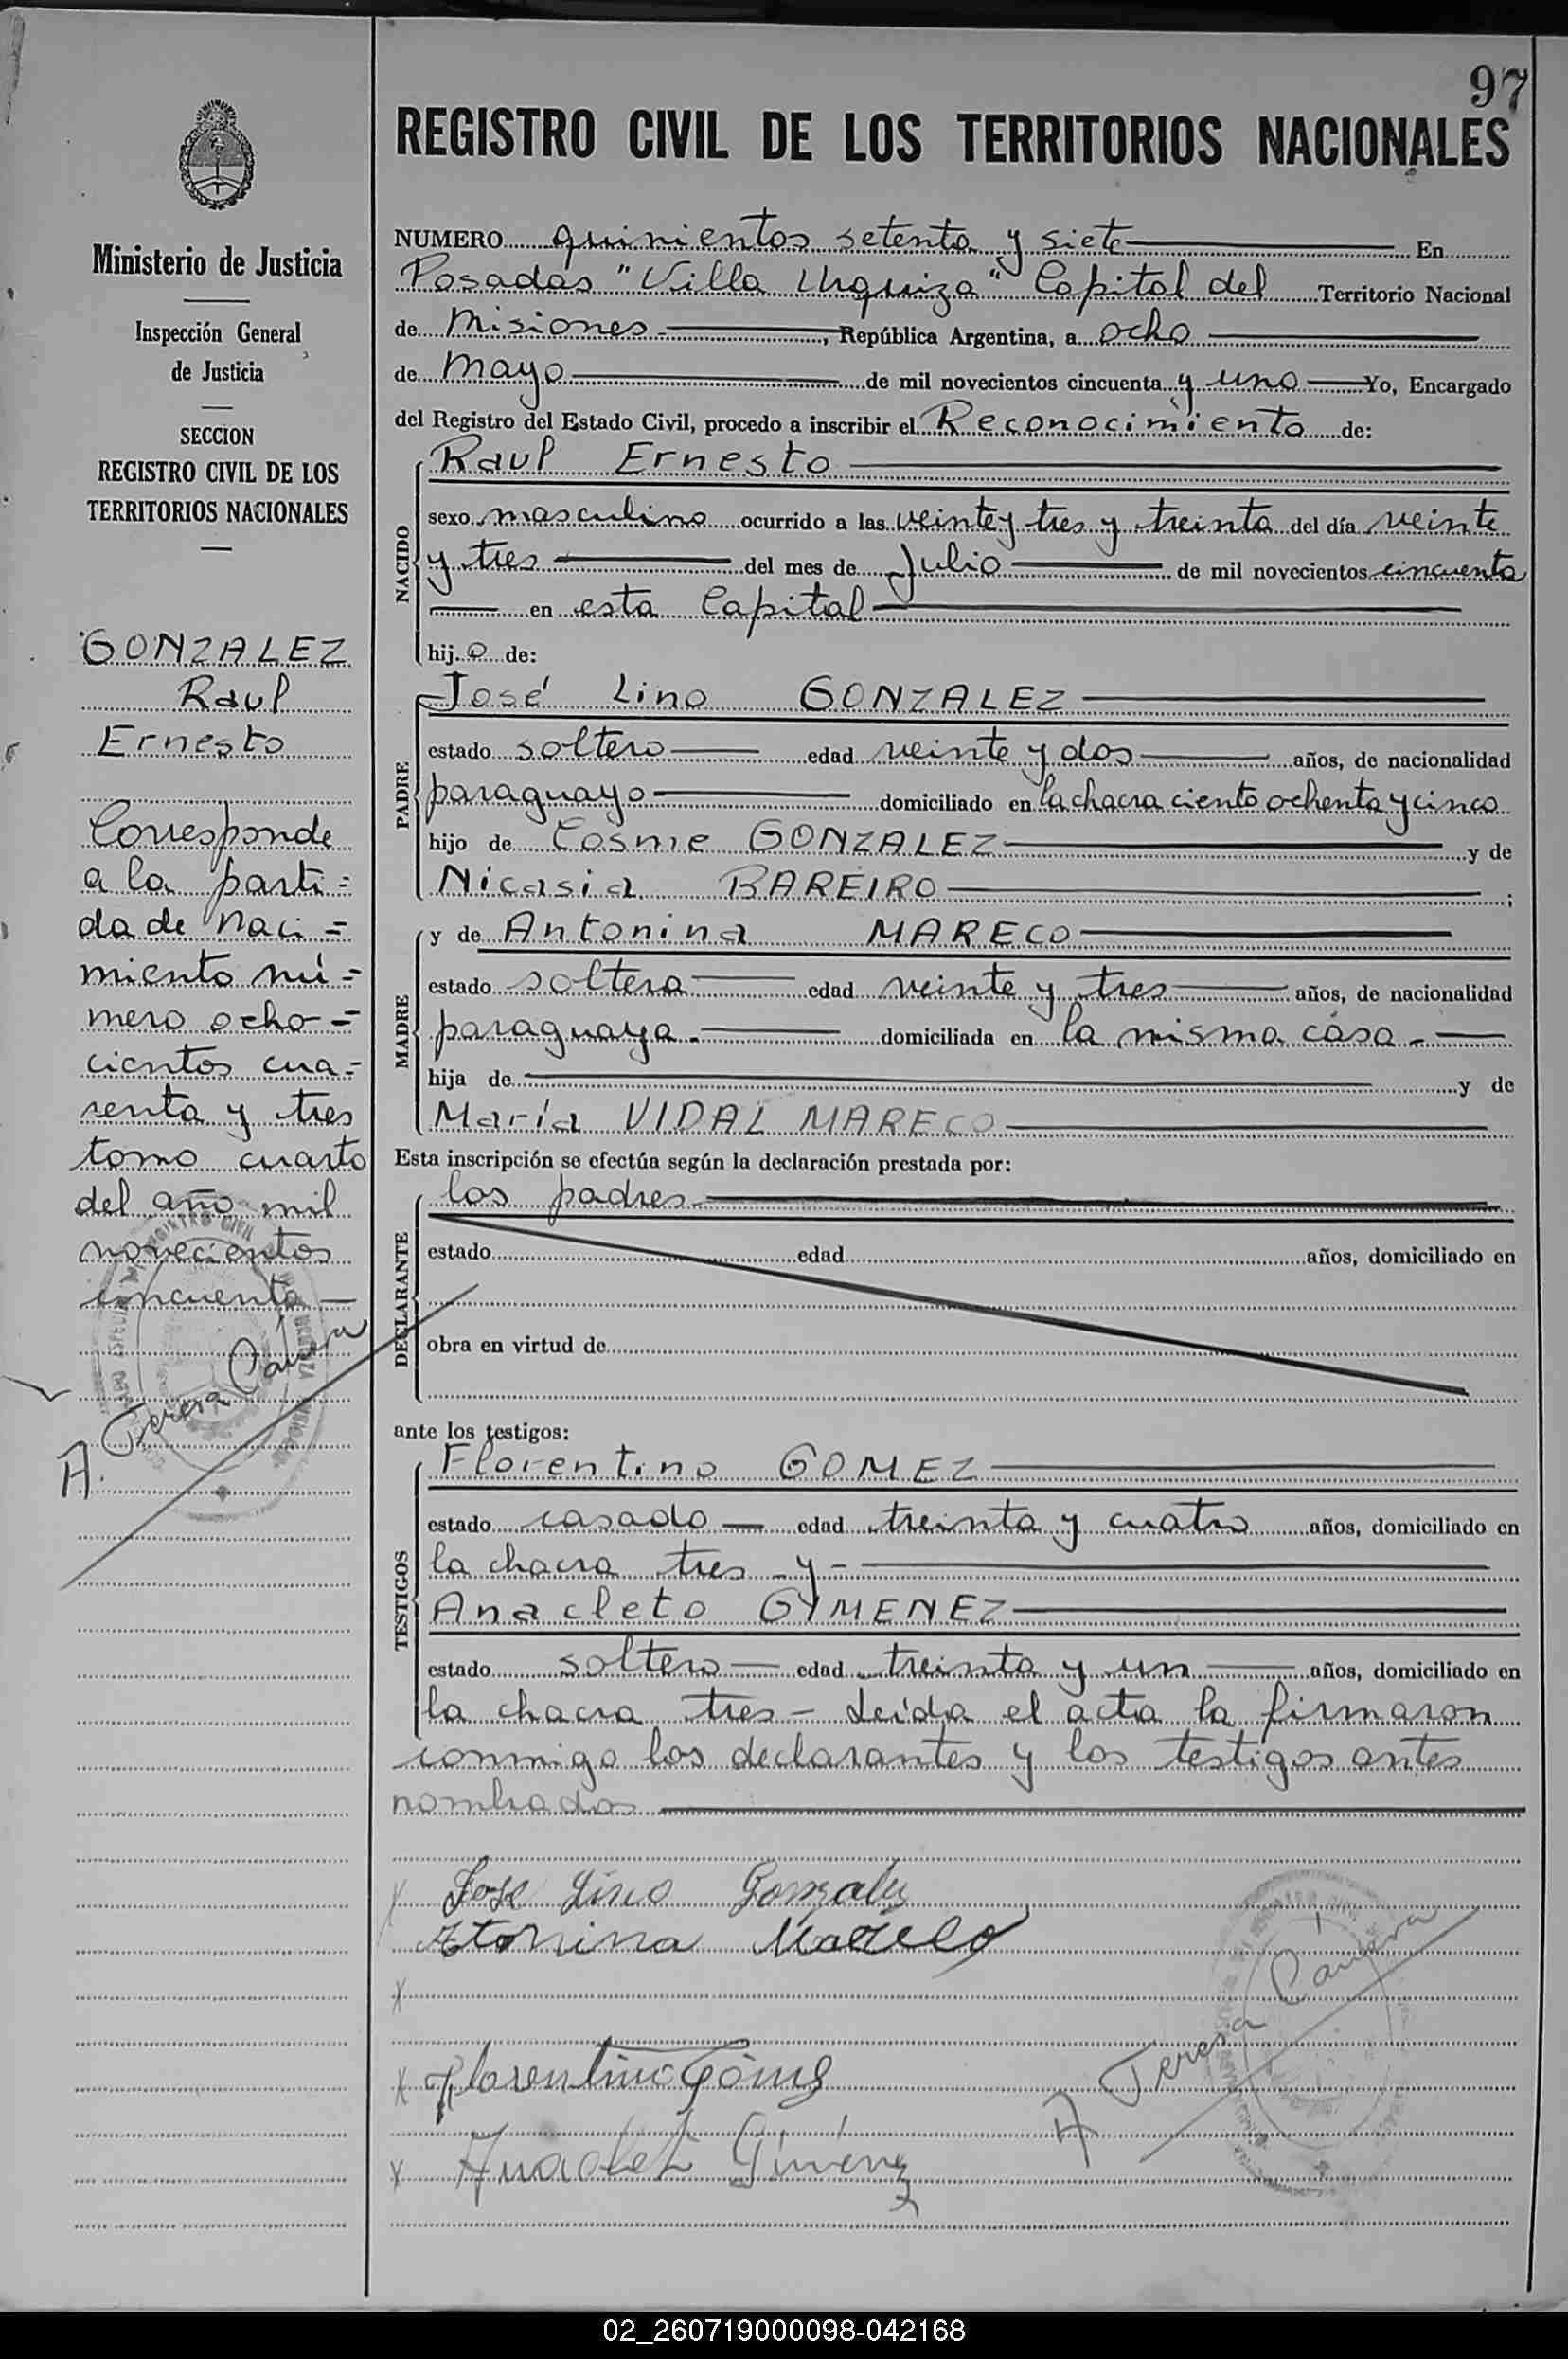 97
REGISTRO CIVIL DE LOS TERRITORIOS NACIONALES
Ministerio de Justicia
Inspección General
de Justicia
SECCION
REGISTRO CIVIL DE LOS
TERRITORIOS NACIONALES
GONZALEZ
Raul
Ernesto
Corresponde
a la parti=
da de Naci=
miento nú=
mero ocho=
cientos cua=
renta y tres
tomo cuarto
del año mil
novecientos
cincuenta
A. Teresa
NUMERO quinientos setenta y siete En
Posadas "Villa Urquiza" Capital del Territorio Nacional
de Misiones, República Argentina, a ocho
de mayo de mil novecientos cincuenta y uno Yo, Encargado
del Registro del Estado Civil, procedo a inscribir el Reconocimiento de:
NACIDO
Raul Ernesto
sexo masculino ocurrido a las veinte y tres y treinta del día veinte
y tres del mes de Julio de mil novecientos cincuenta
en esta Capital
hijo de:
PADRE
José Lino GONZALEZ
estado soltero edad veinte y dos años, de nacionalidad
paraguayo domiciliado en la chacra ciento ochenta y cinco
hijo de Cosme GONZALEZ y de
Nicasia BAREIRO;
MADRE
y de Antonina MARECO
estado soltera edad veinte y tres años, de nacionalidad
paraguaya.- domiciliada en la misma casa.-
hija de y de
María VIDAL MARECO
Esta inscripción se efectúa según la declaración prestada por:
DECLARANTE
los padres
estado edad años, domiciliado en
obra en virtud de
ante los testigos:
TESTIGOS
Florentino GOMEZ
estado casado edad treinta y cuatro años, domiciliado en
la chacra tres y-
Anacleto GYMENEZ
estado soltero edad treinta y un años, domiciliado en
la chacra tres- Leída el acta la firmaron
conmigo los declarantes y los testigos antes
nombrados
Jose Lino Gonzalez
Atonina Mareco
Florentino Gómez
Anaclet Giménez
A Teresa
02_260719000098-042168